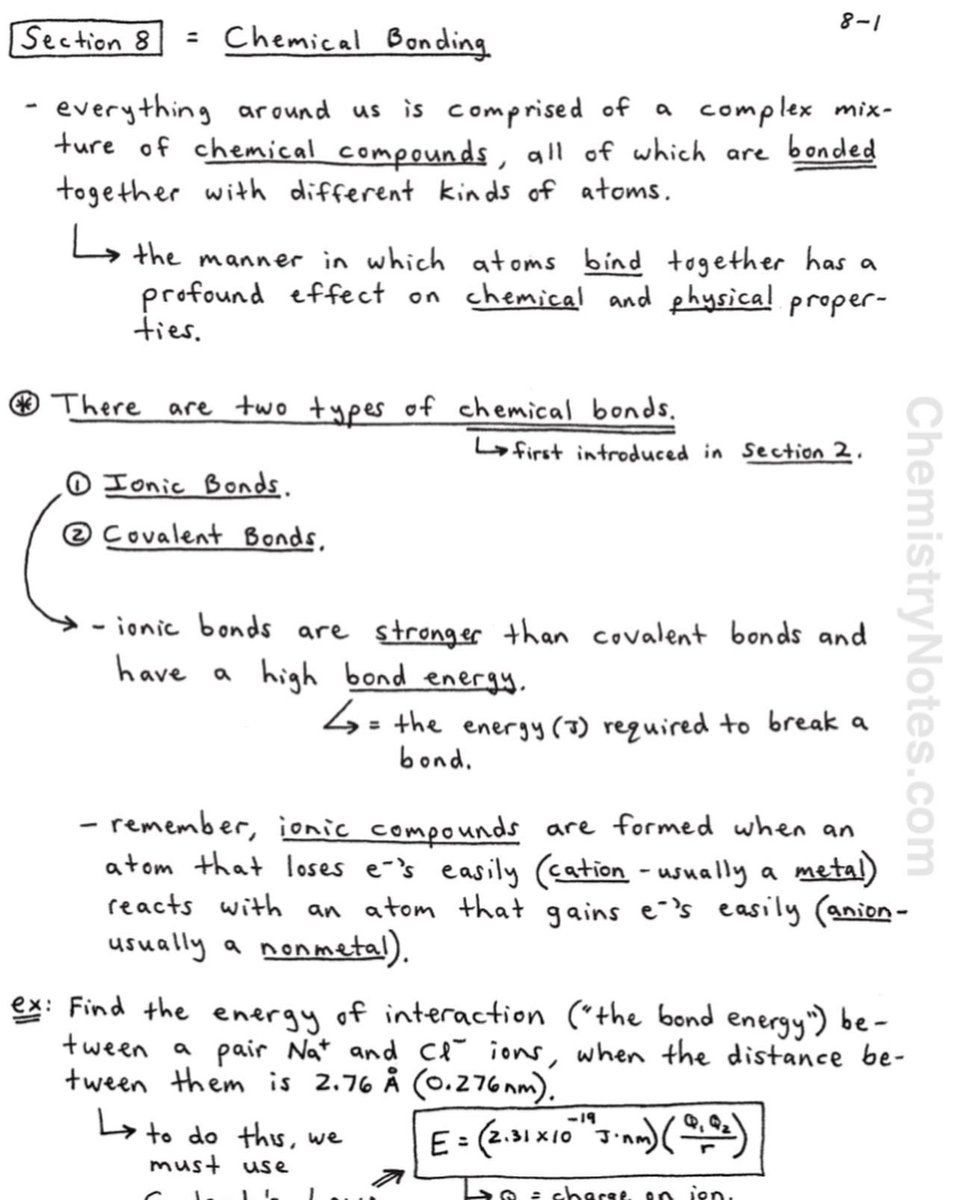 8-1
Section 8 = Chemical Bonding
- everything around us is comprised of a complex mix-
ture of chemical compounds, all of which are bonded
together with different kinds of atoms.
↳ the manner in which atoms bind together has a
profound effect on chemical and physical proper-
ties.
⊛ There are two types of chemical bonds.
↳ first introduced in Section 2.
① Ionic Bonds.
② Covalent Bonds.
→ - ionic bonds are stronger than covalent bonds and
have a high bond energy.
↳ = the energy (J) required to break a
bond.
- remember, ionic compounds are formed when an
atom that loses e⁻'s easily (cation - usually a metal)
reacts with an atom that gains e⁻'s easily (anion -
usually a nonmetal).
ex: Find the energy of interaction ("the bond energy") be-
tween a pair Na⁺ and Cl⁻ ions, when the distance be-
tween them is 2.76 Å (0.276 nm).
↳ to do this, we
must use
E = (2.31 x 10⁻¹⁹ J·nm)(Q₁Q₂/r)
↳ Q = charge on ion.
ChemistryNotes.com